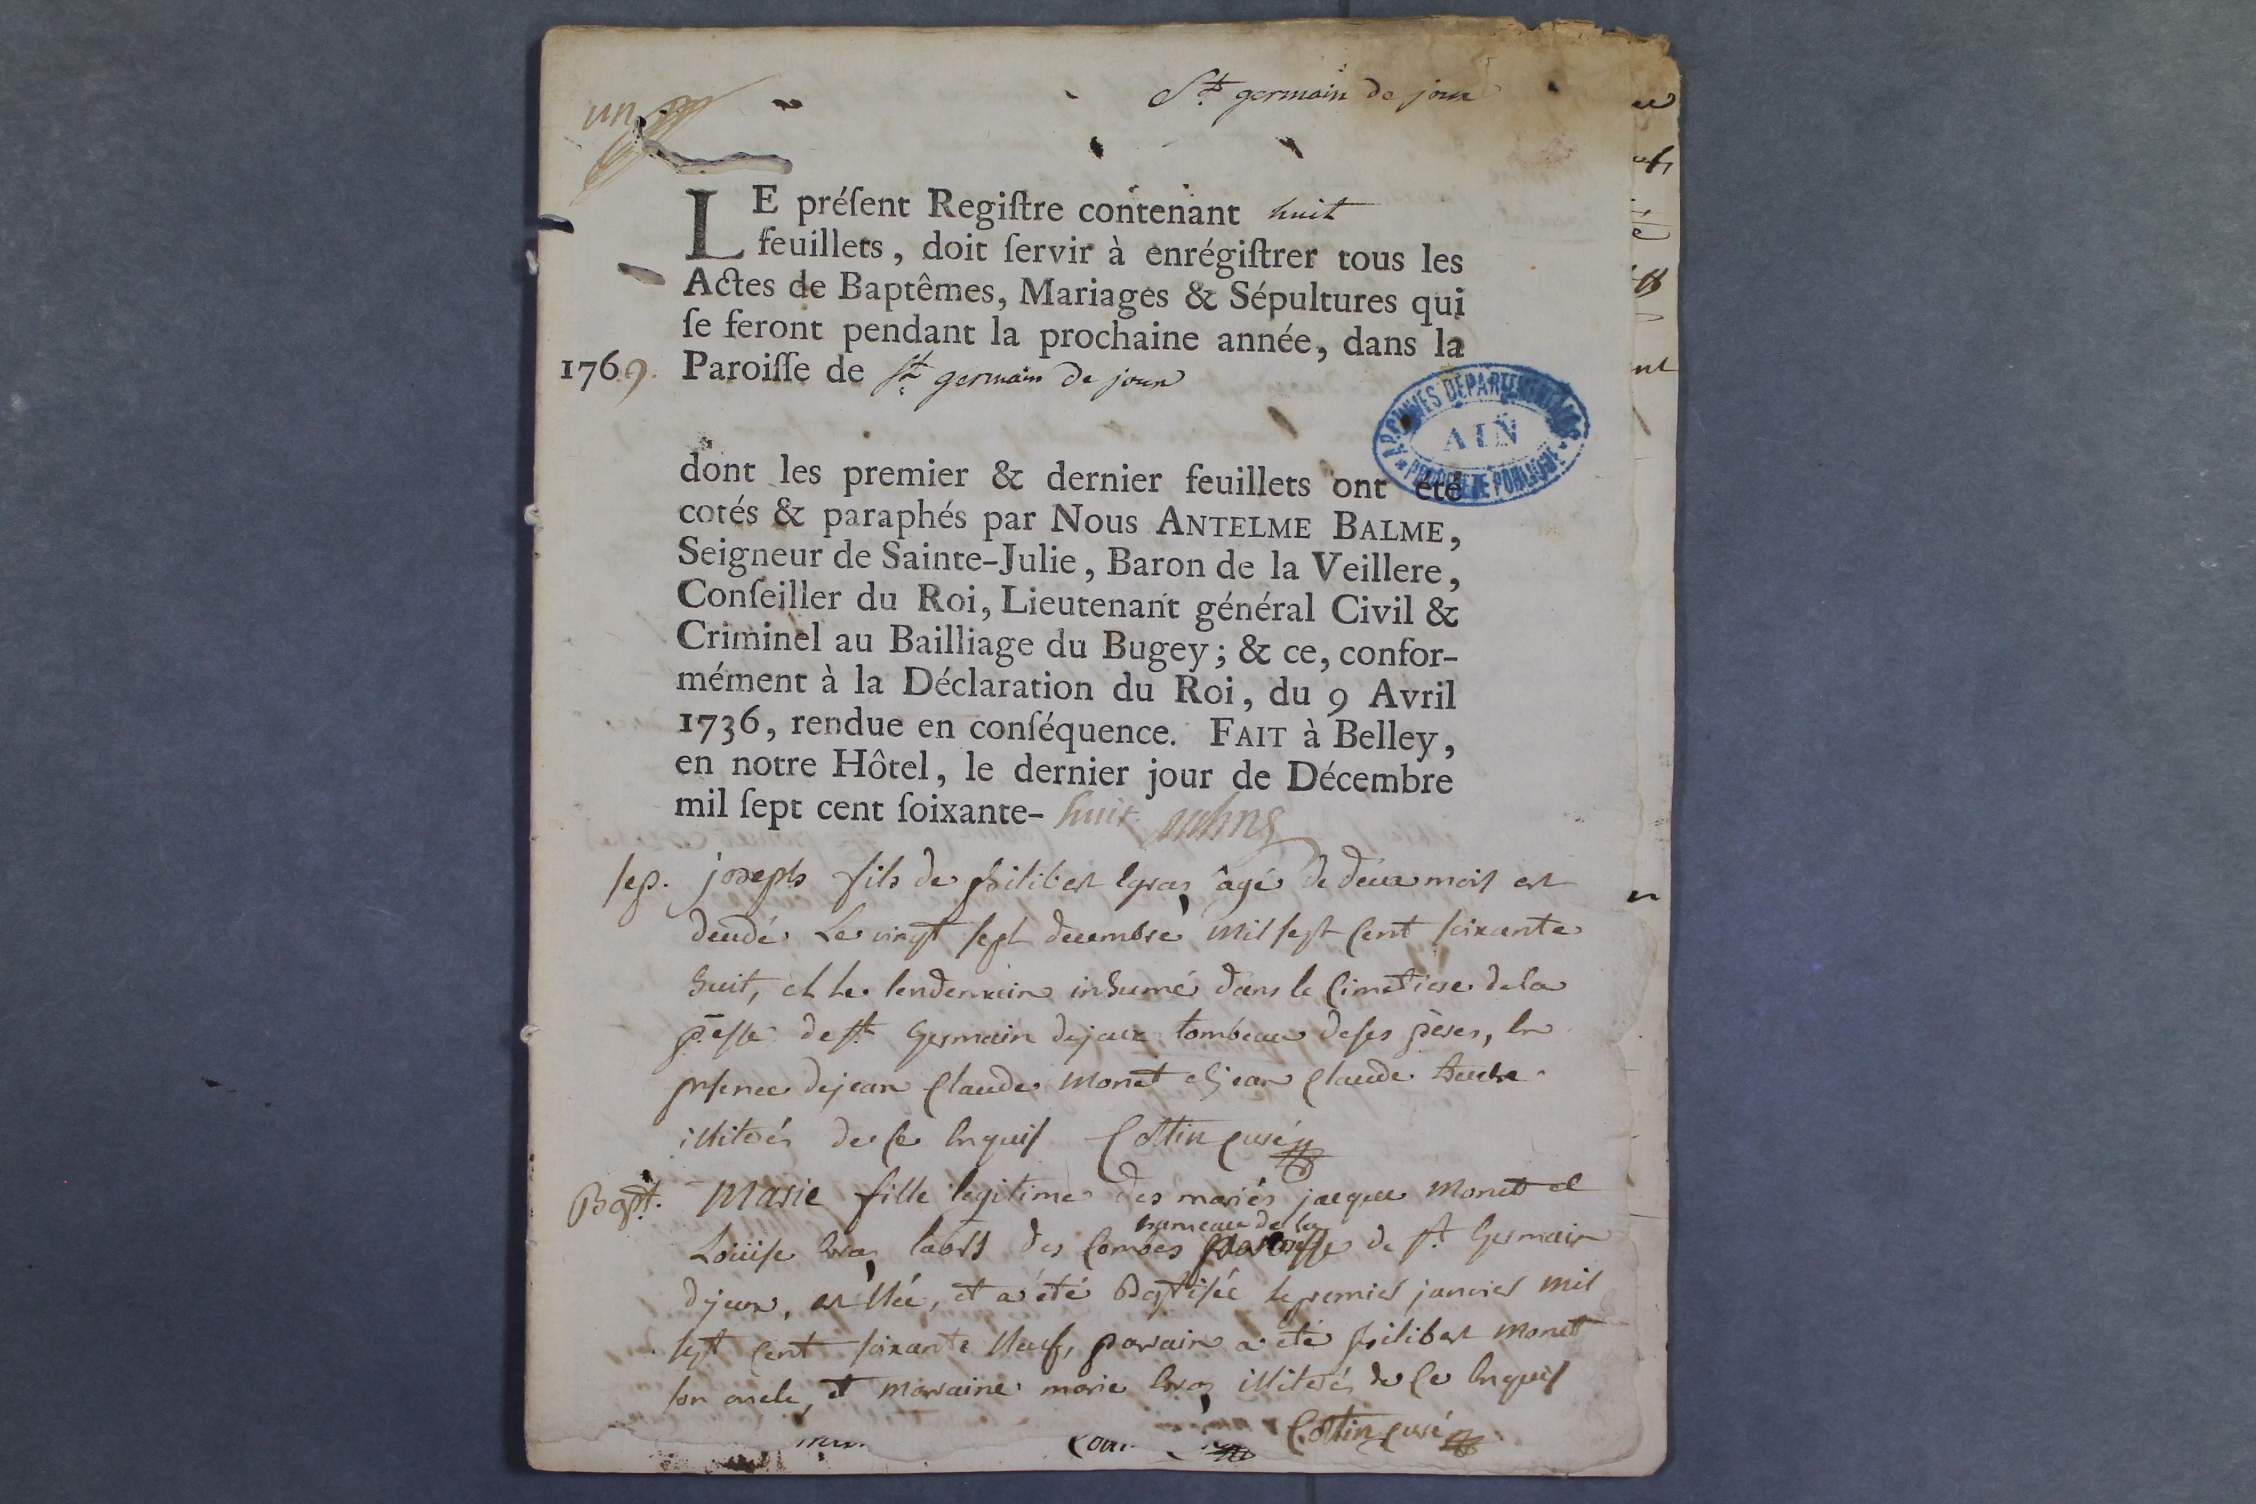 St germain de joux
un
LE préſent Regiſtre contenant huit
feuillets, doit ſervir à enrégiſtrer tous les
Actes de Baptêmes, Mariages & Sépultures qui
ſe feront pendant la prochaine année, dans la
1769. Paroiſſe de St germain de joux
ARCHIVES DÉPARTEMENTALES
AIN
PROPRIÉTÉ PUBLIQUE
dont les premier & dernier feuillets ont été
cotés & paraphés par Nous ANTELME BALME,
Seigneur de Sainte-Julie, Baron de la Veillere,
Conſeiller du Roi, Lieutenant général Civil &
Criminel au Bailliage du Bugey; & ce, confor-
mément à la Déclaration du Roi, du 9 Avril
1736, rendue en conſéquence. FAIT à Belley,
en notre Hôtel, le dernier jour de Décembre
mil ſept cent ſoixante- huit
sep. joseph fils de philibert âgé de deux mois est
decedé le vingt sept decembre mil sept cent soixante
huit, et le lendemain inhumé dans le cimetiere de la
p.esse de st germain dejoux tombeau de ses peres, en
presence de jean claude Monet et jean claude
illiterés de ce enquis Cottin curé
Bapt. Marie fille legitime des mariés jacque Monet et
Louise labrs des combes hameau de la paroisse de st germain
dejoux, est née, et a été Baptisée le premier janvier mil
sept cent soixante neuf, parain a été philibert monet
son oncle, et maraine marie illiterés de ce enquis
Cottin curé